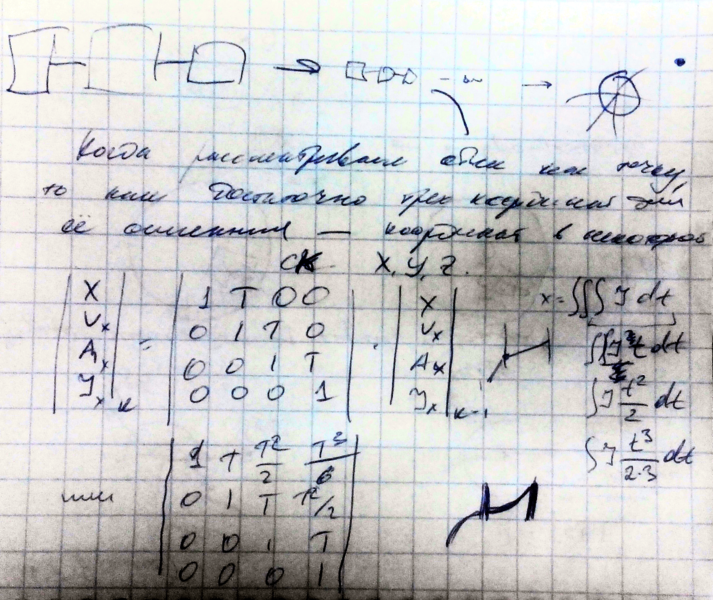 Когда рассматриваем как точку,
то нам достаточно трех координат для
её описания — координат в некоторой
СК. X, Y, Z.
|X Vx Ax Jx|k = |1 T 0 0| · |X Vx Ax Jx|k-1 x = ∫∫∫ J dt
0 1 T 0 ∫∫ J t dt
0 0 1 T ∫ J t²/2 dt
0 0 0 1
∫ J t³/2·3 dt
или |1 T T²/2 T³/6|
0 1 T T²/2
0 0 1 T
0 0 0 1